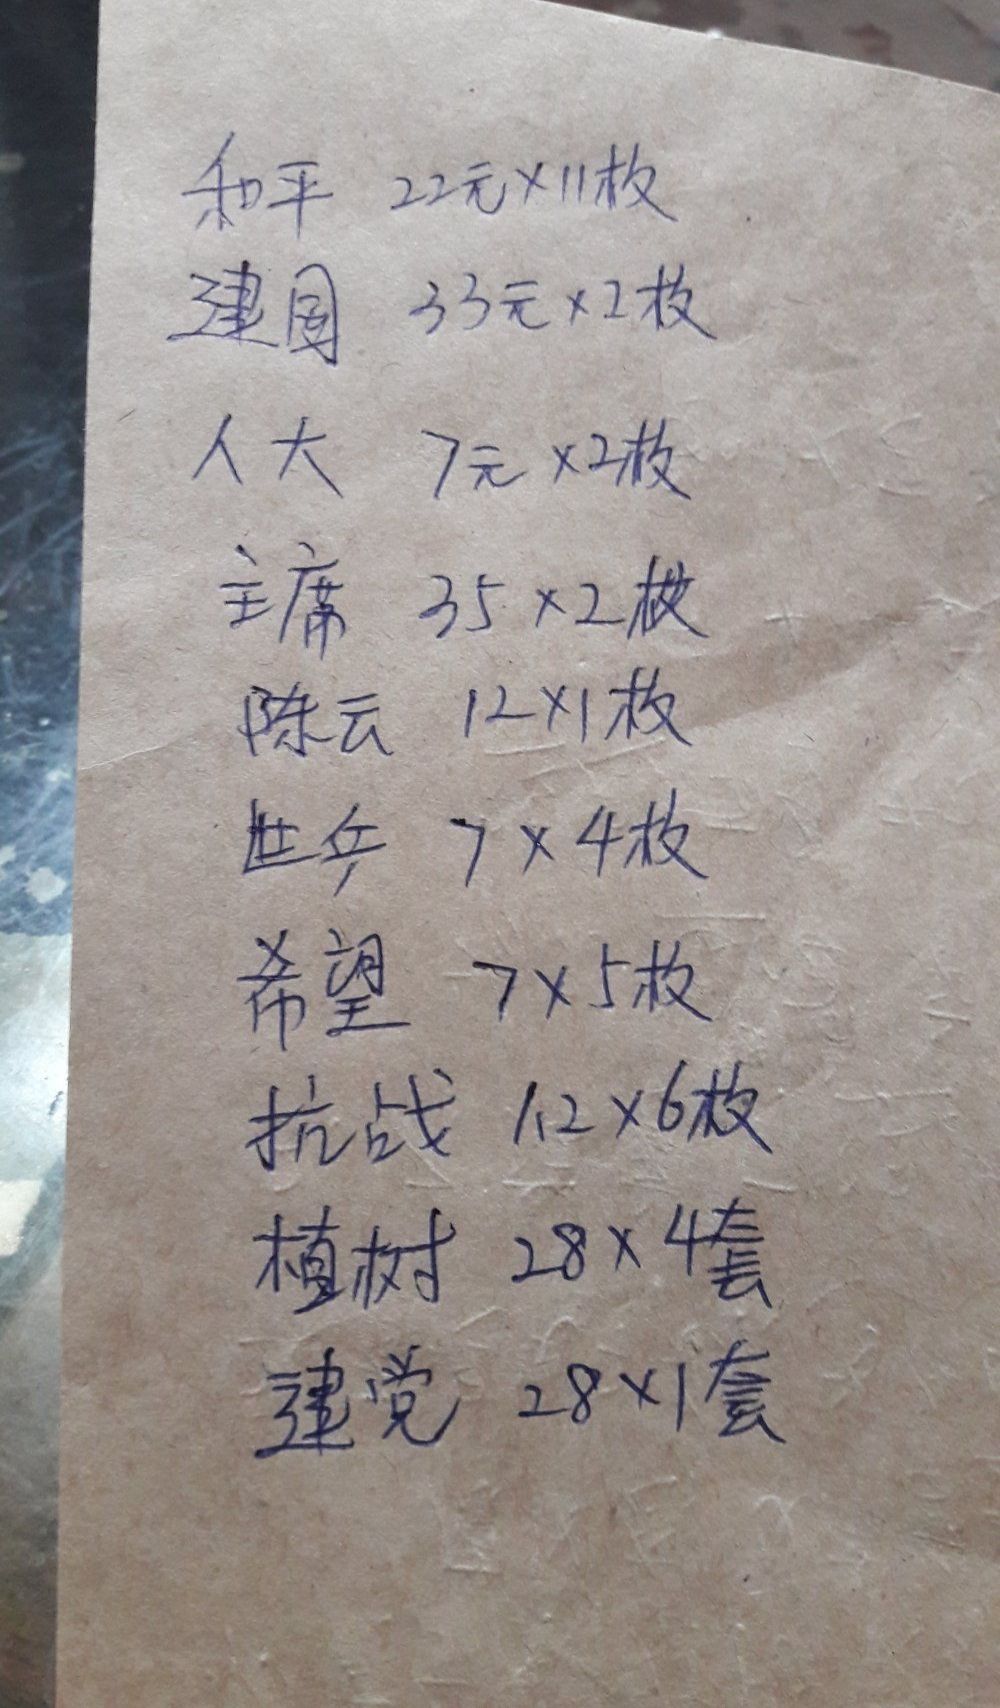 和平 22元×11枚
建国 33元×2枚
人大 7元×2枚
主席 35×2枚
陈云 12×1枚
世乒 7×4枚
希望 7×5枚
抗战 12×6枚
植树 28×4套
建党 28×1套